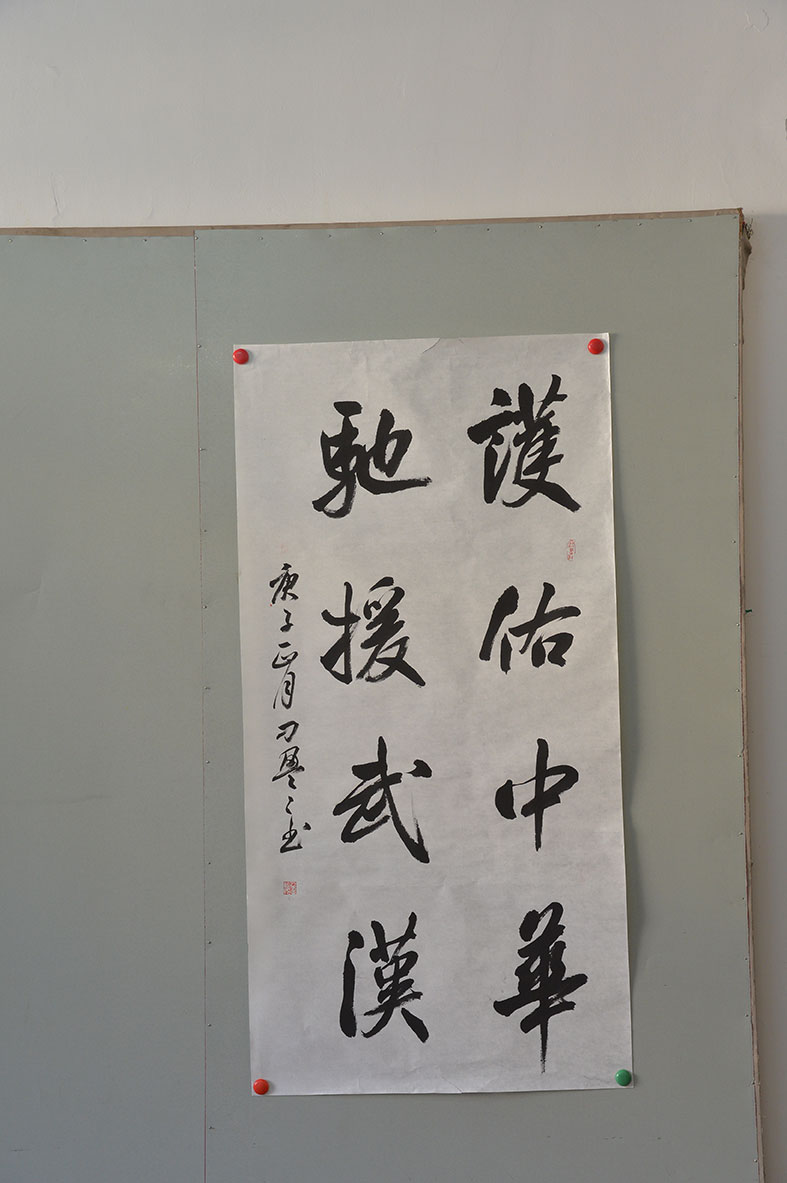 護佑中華
馳援武漢
庚子正月刁
書